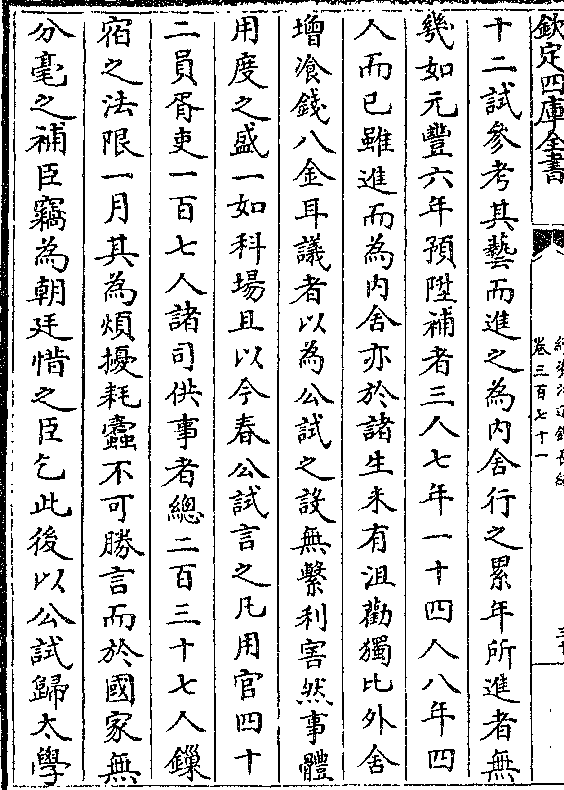 欽定四庫全書
卷三百七十一
十二試參考其藝而進之為内舍行之累年所進者無
幾如元豐六年預陞補者三人七年一十四人八年四
人而已雖進而為内舍亦於諸生未有沮勸獨比外舍
增飡錢八金耳議者以為公試之設無繫利害然事體
用度之盛一如科場且以今春公試言之凡用官四十
二員胥吏一百七人諸司供事者總二百三十七人鏁
宿之法限一月其為煩擾耗蠹不可勝言而於國家無
分毫之補臣竊為朝廷惜之臣乞此後以公試歸太學